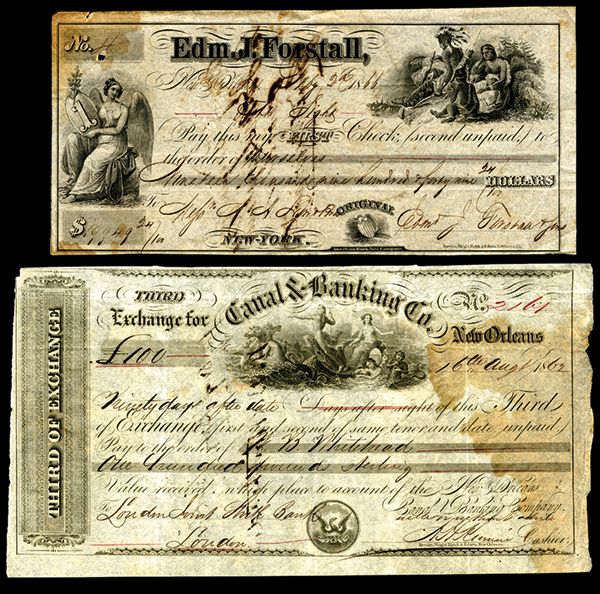 No. 4
Edm. J. Forstall,
2d 1866
At Sight
Pay this my FIRST Check, (second unpaid,) to
the order of Ourselves
Nineteen thousand nine hundred & forty nine 24 DOLLARS
To Mess
ORIGINAL
$19,949 24/100
Edmd J. Forstall & Sons
NEW-YORK.
American Bank Note Company.
THIRD
Canal & Banking Co.
No. 2161
Exchange for
New Orleans
£100
16th Augt 1862
THIRD OF EXCHANGE
Ninety days after date Days after sight of this Third
of Exchange, first and second of same tenor and date unpaid)
Pay to the order of B Whitehead
One hundred pounds sterling
Value received, which place to account of the New Orleans
To London Joint Stock Bank
Canal & Banking Company
London
Cashier.